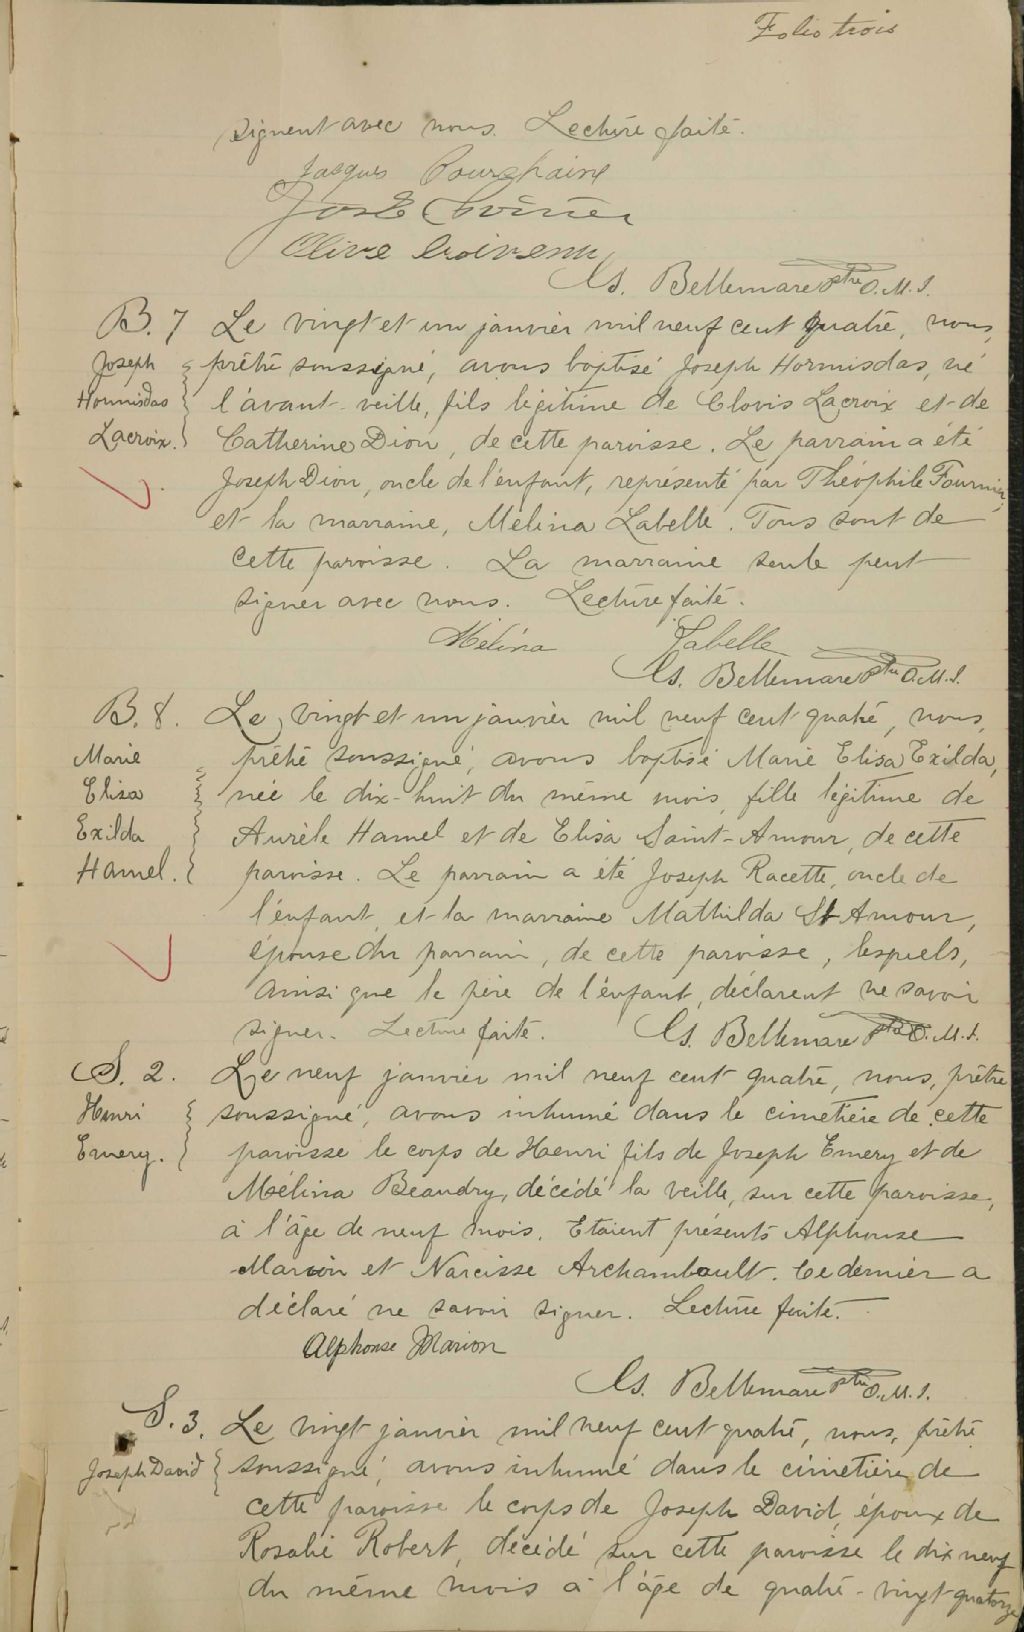 Folio trois
signent avec nous. Lecture faite.
Jacques
Olive
Cs. Bellemare Ptre O.M.I.
B. 7 Le vingt et un janvier mil neuf cent quatre, nous,
Joseph prêtre soussigné, avons baptisé Joseph Hormisdas, né
Hormisdas l'avant-veille, fils légitime de Clovis Lacroix et de
Lacroix. Catherine Dion, de cette paroisse. Le parrain a été
Joseph Dion, oncle de l'enfant, représenté par Théophile Fournier,
et la marraine, Mélina Labelle. Tous sont de
cette paroisse. La marraine seule peut
signer avec nous. Lecture faite.
Mélina Labelle
Cs. Bellemare Ptre O.M.I.
B. 8. Le vingt et un janvier mil neuf cent quatre, nous,
Marie prêtre soussigné, avons baptisé Marie Elisa Exilda,
Elisa née le dix-huit du même mois, fille légitime de
Exilda Aurèle Hamel et de Elisa Saint-Amour, de cette
Hamel. paroisse. Le parrain a été Joseph Racette, oncle de
l'enfant, et la marraine Mathilda St Amour,
épouse du parrain, de cette paroisse, lesquels,
ainsi que le père de l'enfant, déclarent ne savoir
signer. Lecture faite. Cs. Bellemare Ptre O.M.I.
S. 2. Le neuf janvier mil neuf cent quatre, nous, prêtre
Henri soussigné, avons inhumé dans le cimetière de cette
Emery. paroisse le corps de Henri fils de Joseph Emery et de
Mélina Beaudry, décédé la veille, sur cette paroisse,
à l'âge de neuf mois. Etaient présents Alphonse
Marion et Narcisse Archambault. Ce dernier a
déclaré ne savoir signer. Lecture faite.
Alphonse Marion
Cs. Bellemare Ptre O.M.I.
S. 3. Le vingt janvier mil neuf cent quatre, nous, prêtre
Joseph David soussigné, avons inhumé dans le cimetière de
cette paroisse le corps de Joseph David, époux de
Rosalie Robert, décédé sur cette paroisse le dix neuf
du même mois à l'âge de quatre-vingt-quatorze